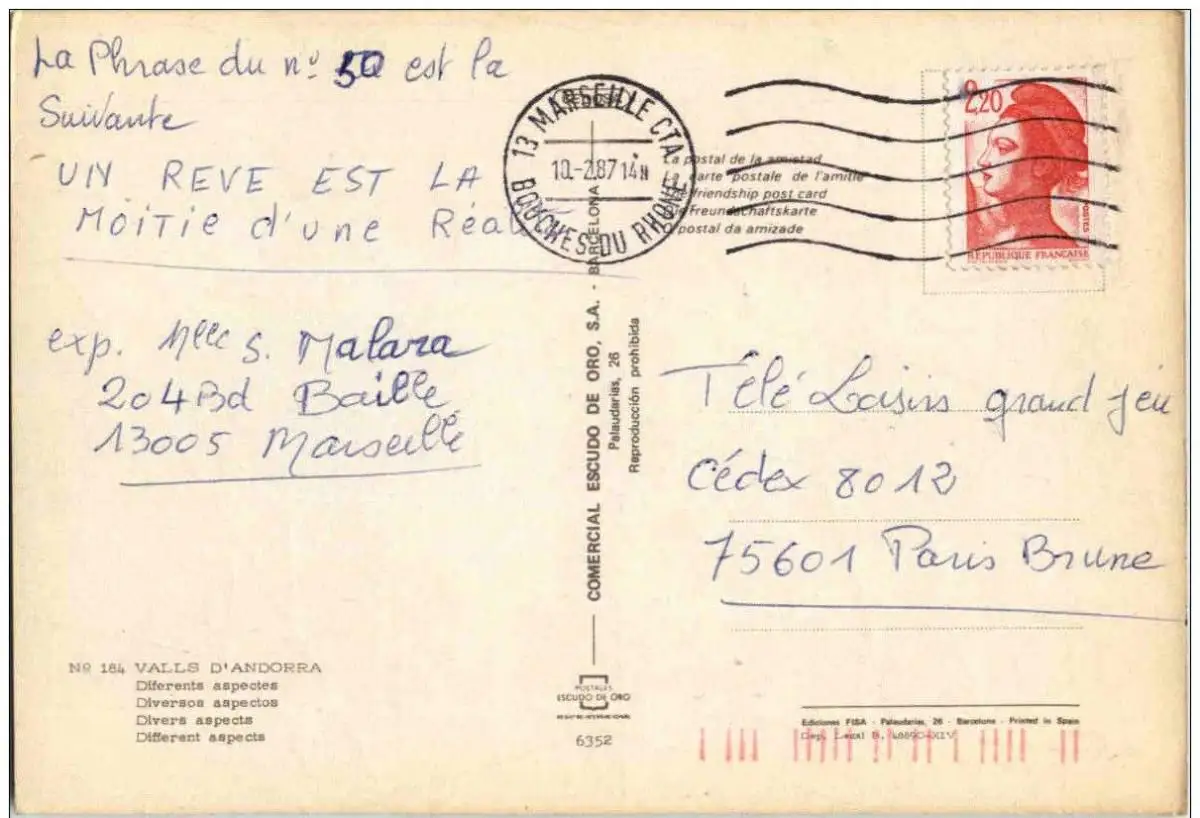 La Phrase du n° 50 est la
Suivante
UN REVE EST LA
MOITIE d'une Réal
exp. Mlle S. Malara
204 Bd Baille
13005 Marseille
Nº 184 VALLS D'ANDORRA
Diferents aspectes
Diversos aspectos
Divers aspects
Different aspects
13 MARSEILLE CTA
10.-2.87 14H
BOUCHES DU RHONE
COMERCIAL ESCUDO DE ORO, S.A. - BARCELONA
Palaudarias, 26
Reproducción prohibida
POSTALES
ESCUDO DE ORO
6352
La postal de la amistad
La carte postale de l'amitié
The friendship post card
Die Freundschaftskarte
O postal da amizade
2,20
POSTES
REPUBLIQUE FRANÇAISE
Télé Loisirs grand jeu
Cédex 8012
75601 Paris Brune
Ediciones FISA - Palaudarias, 26 - Barcelona - Printed in Spain
Dep. Legal B. 48890-XIV